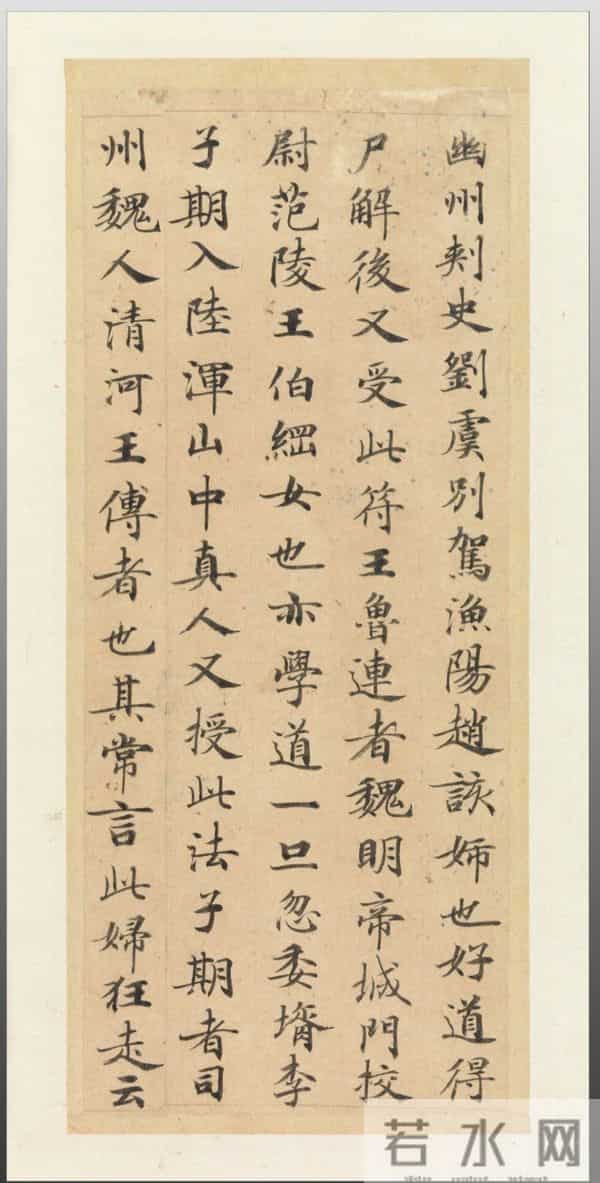 幽州刾史劉虞別駕漁陽趙該姉也好道得
尸解後又受此符王魯連者魏明帝城門挍
尉范陵王伯綱女也亦學道一旦忽委壻李
子期入陸渾山中真人又授此法子期者司
州魏人清河王傅者也其常言此婦狂走云
若水网